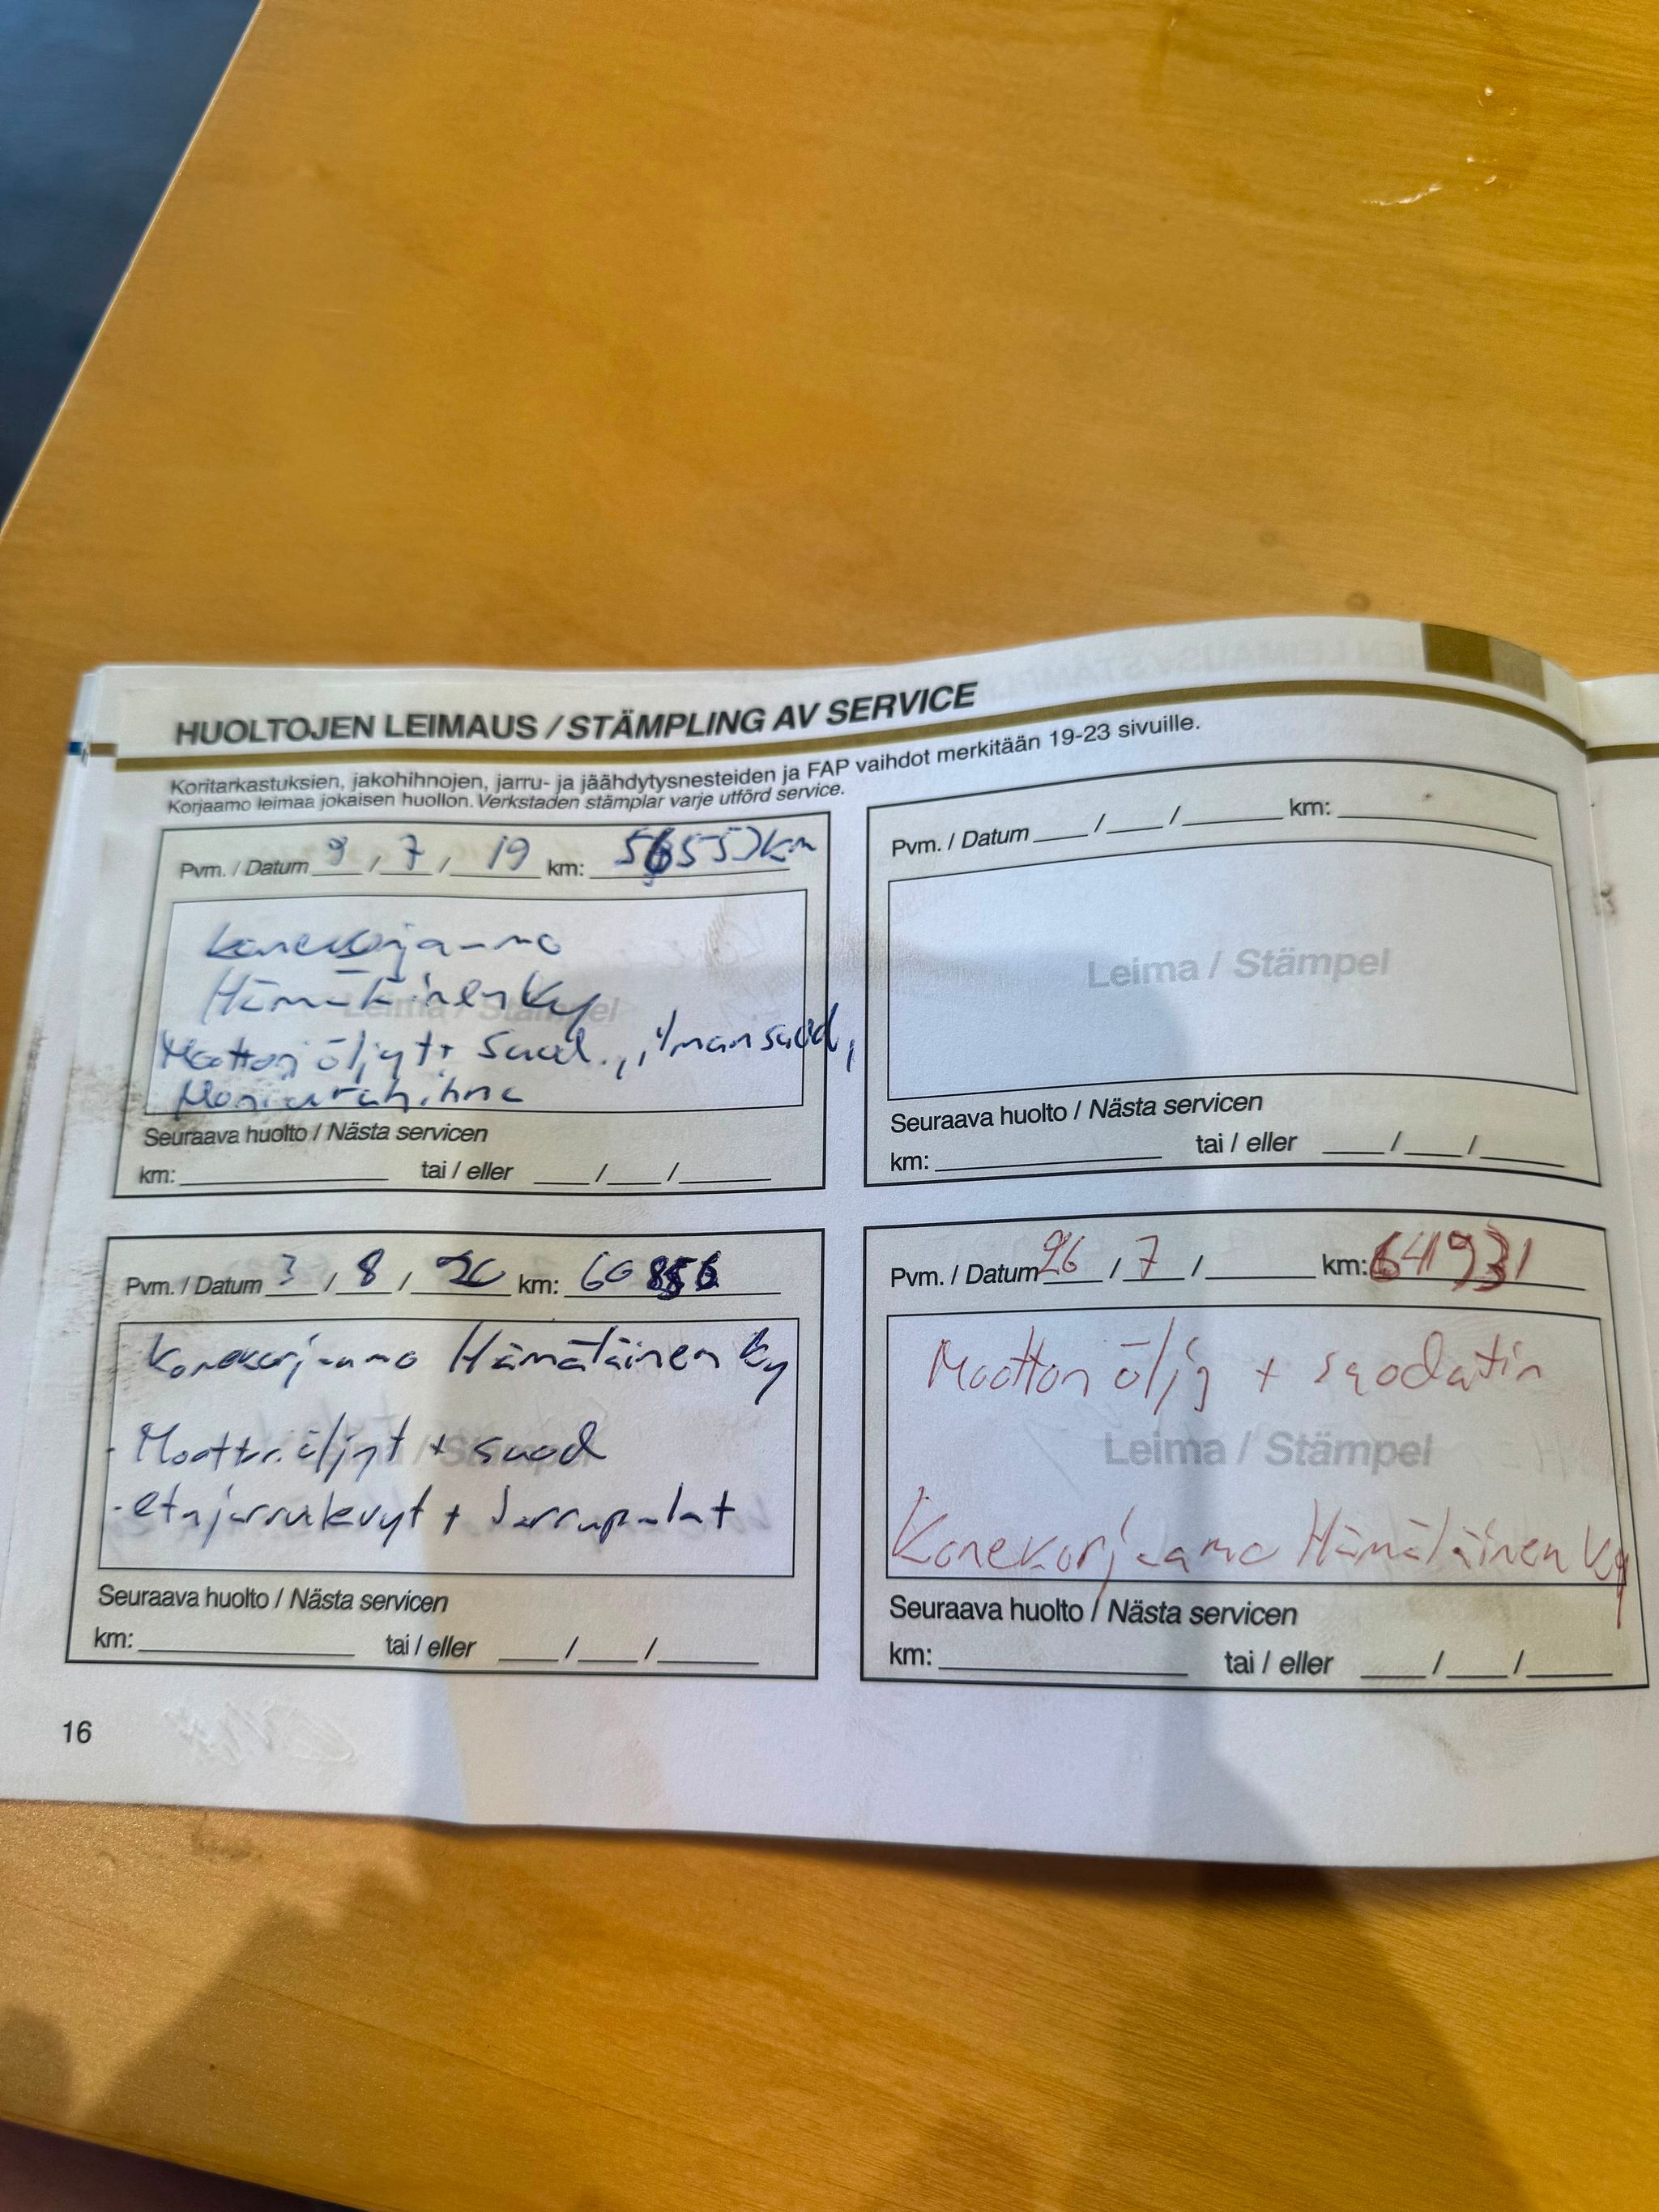 HUOLTOJEN LEIMAUS / STÄMPLING AV SERVICE
Koritarkastuksien, jakohihnojen, jarru- ja jäähdytysnesteiden ja FAP vaihdot merkitään 19-23 sivuille.
Korjaamo leimaa jokaisen huollon. Verkstaden stämplar varje utförd service.
Pvm. / Datum 9 / 7 / 19 km:
Konekorjaamo
Hämäläinen Ky
Leima / Stämpel
Moottoriöljyt + suod., ilmansuod,
Moniurahihna
Seuraava huolto / Nästa servicen
km: tai / eller / /
Pvm. / Datum / / km:
Leima / Stämpel
Seuraava huolto / Nästa servicen
km: tai / eller / /
Pvm. / Datum 3 / 8 / 20 km:
Konekorjaamo Hämäläinen Ky
- Moottoriöljyt + suod
Leima / Stämpel
- etujarrulevyt + Jarrupalat
Seuraava huolto / Nästa servicen
km: tai / eller / /
Pvm. / Datum 26 / 7 / km: 64931
Moottoriöljy + suodatin
Leima / Stämpel
Konekorjaamo Hämäläinen Ky
Seuraava huolto / Nästa servicen
km: tai / eller / /
16